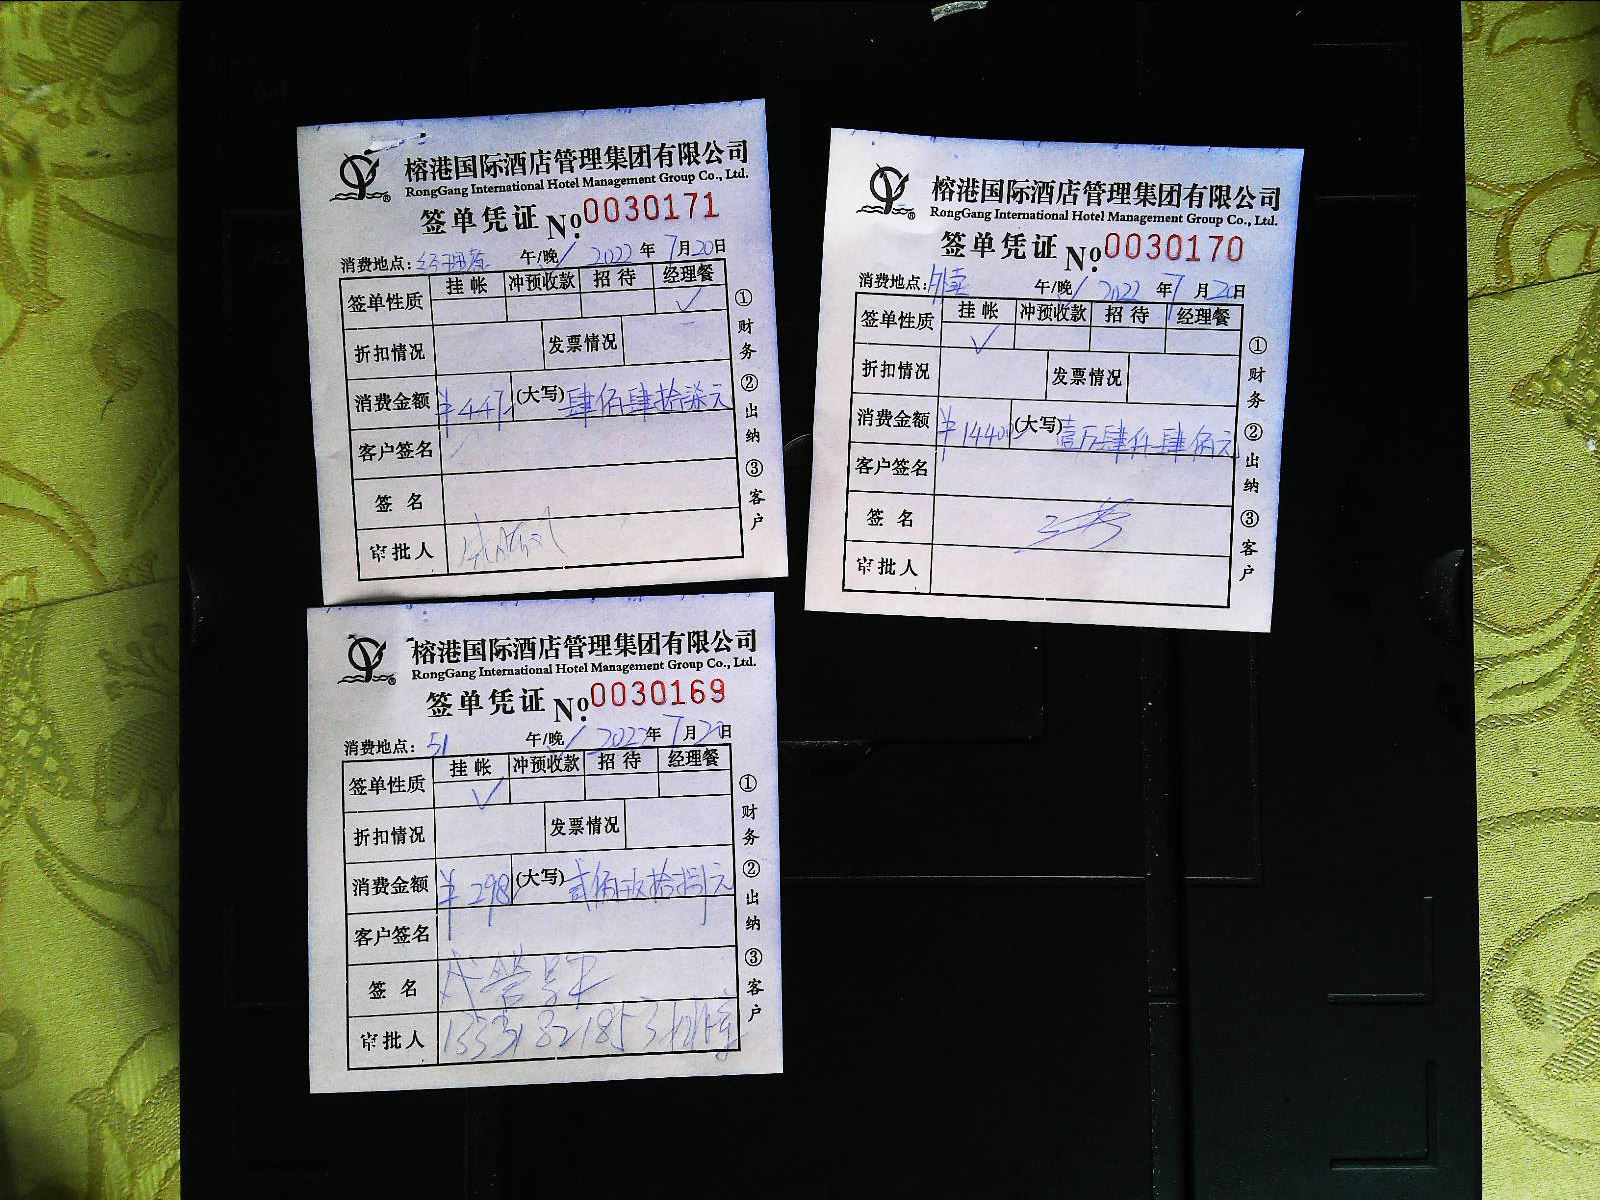 榕港国际酒店管理集团有限公司
RongGang International Hotel Management Group Co., Ltd.
签单凭证 No. 0030171
消费地点: 经理餐 午/晚 ✓ 2022 年 7月20日
签单性质 挂帐 冲预收款 招待 经理餐 ✓
折扣情况 发票情况
消费金额 ¥447 (大写) 肆佰肆拾柒元
客户签名
签名
审批人
①财务 ②出纳 ③客户
榕港国际酒店管理集团有限公司
RongGang International Hotel Management Group Co., Ltd.
签单凭证 No. 0030170
消费地点: 外卖 午/晚 ✓ 2022 年 7月20日
签单性质 挂帐 ✓ 冲预收款 招待 经理餐
折扣情况 发票情况
消费金额 ¥14400 (大写) 壹万肆仟肆佰元
客户签名
签名
审批人
①财务 ②出纳 ③客户
榕港国际酒店管理集团有限公司
RongGang International Hotel Management Group Co., Ltd.
签单凭证 No. 0030169
消费地点: 51 午/晚 ✓ 2022年 7月20日
签单性质 挂帐 ✓ 冲预收款 招待 经理餐
折扣情况 发票情况
消费金额 ¥298 (大写) 贰佰玖拾捌元
客户签名
签名
审批人 13331821853
①财务 ②出纳 ③客户